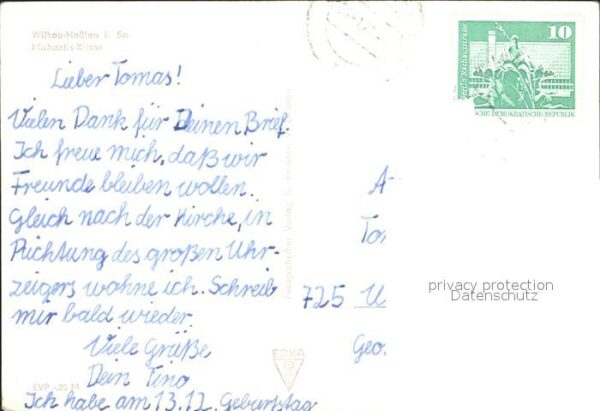 Wilkau-Haßlau i. Sa.
Michaelis-Kirche
10
Berlin, Rathausstraße
DEUTSCHE DEMOKRATISCHE REPUBLIK
Lieber Tomas!
Vielen Dank für Deinen Brief.
Ich freue mich, daß wir
Freunde bleiben wollen.
Gleich nach der Kirche, in
Richtung des großen Uhr-
zeigers wohne ich. Schreib
mir bald wieder.
Viele Grüße
Dein Tino
Ich habe am 13.12. Geburtstag
A
To
725 U
Geo.
privacy protection
Datenschutz
ERKA
EVP -,20 M